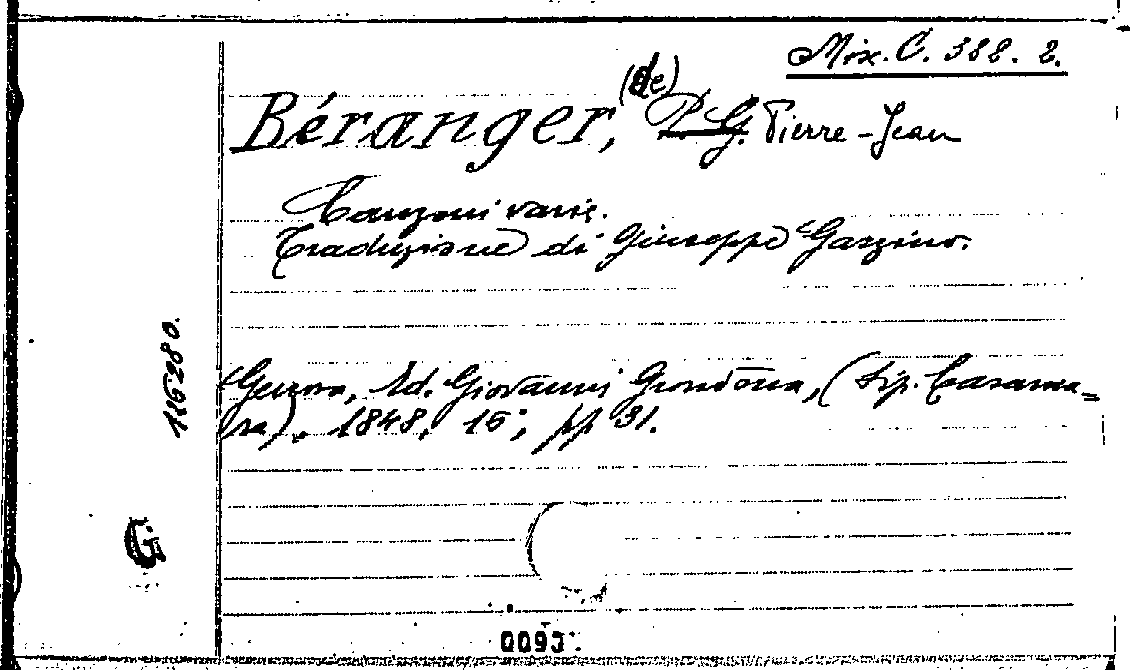 Misc. C. 388. 2.
Béranger, (de) P. G. Pierre-Jean
Canzoni varie.
Traduzione di Giuseppe Gazzino.
116280.
Genova, Ed. Giovanni Grondona, (Tip. Casama=
ra), 1848, 16°, pp 31.
G.